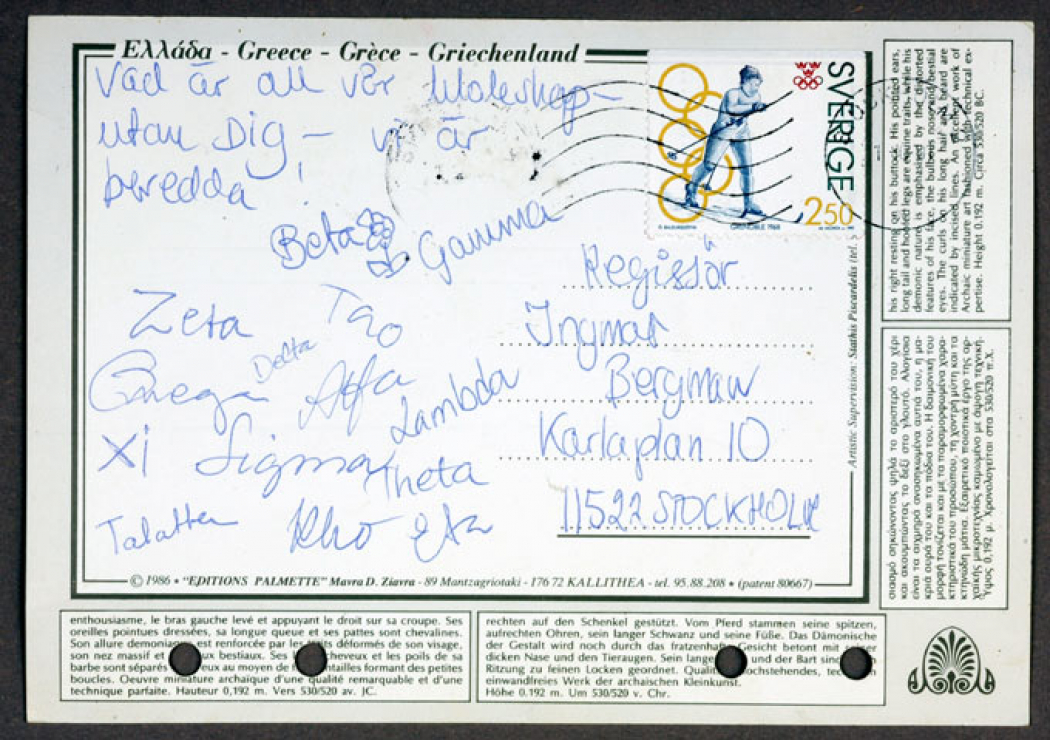 Ελλάδα - Greece - Grèce - Griechenland
Vad är all vår
utan Dig - vi är
beredda!
Beta Gamma
Zeta Tao
Delta
Omega Alfa
Lambda
Xi Sigma Theta
Talatta Rho Eta
SVERIGE
250
GRENOBLE 1968
Regissör
Ingmar
Bergman
Karlaplan 10
11522 STOCKHOLM
© 1986 • "EDITIONS PALMETTE" Mavra D. Ziavra - 89 Mantzagriotaki - 176 72 KALLITHEA - tel. 95.88.208 • (patent 80667)
Artistic Supervision: Stathis Piscardelis (tel.
his right resting on his buttock. His pointed ears,
long tail and hoofed legs are equine traits, while his
demonic nature is emphasised by the distorted
features of his face, the bulbous nose and bestial
eyes. The curls on his long hair and beard are
indicated by incised lines. An excellent work of
Archaic miniature art fashioned with technical ex-
pertise. Height 0.192 m. Circa 530/520 BC.
σιασμό σηκώνοντας ψηλά το αριστερό του χέρι
και ακουμπώντας το δεξί στο γλουτό. Αλογίσια
είναι τα αιχμηρά ανασηκωμένα αυτιά του, η μα-
κριά ουρά του και τα πόδια του. Η δαιμονική του
μορφή τονίζεται και με τα παραμορφωμένα χαρα-
κτηριστικά του προσώπου, τη χοντρή μύτη και τα
κτηνώδη μάτια. Εξαιρετικό ποιοτικά έργο της αρ-
χαϊκής μικροτεχνίας καμωμένο με άψογη τεχνική.
Ύψος 0,192 μ. Χρονολογείται στα 530/520 π.Χ.
enthousiasme, le bras gauche levé et appuyant le droit sur sa croupe. Ses
oreilles pointues dressées, sa longue queue et ses pattes sont chevalines.
Son allure demoniaque est renforcée par les traits déformés de son visage,
son nez massif et yeux bestiaux. Ses cheveux et les poils de sa
barbe sont séparés eux au moyen de entailles formant des petites
boucles. Oeuvre miniature archaïque d'une qualité remarquable et d'une
technique parfaite. Hauteur 0,192 m. Vers 530/520 av. JC.
rechten auf den Schenkel gestützt. Vom Pferd stammen seine spitzen,
aufrechten Ohren, sein langer Schwanz und seine Füße. Das Dämonische
der Gestalt wird noch durch das fratzenhafte Gesicht betont mit seiner
dicken Nase und den Tieraugen. Sein langes und der Bart sind
Ritzung zu feinen Locken geordnet. Qualitativ hochstehendes,
einwandfreies Werk der archaischen Kleinkunst.
Höhe 0.192 m. Um 530/520 v. Chr.